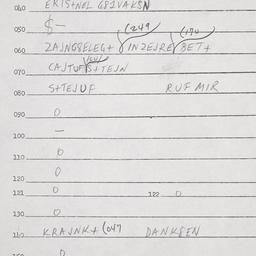 040 ERIS+NOL GBIVAKSN
050 $-
(249 (170
060 ZAJNGSELEG+ INZEJRE BET+
070 CAJTUF S+TEJN
080 S+TEJUF RUF MIR
090 0
100 —
110 0
120 0
121 0 122 0
130 0
140 KRAJNK+ (047 DANKSEN
0